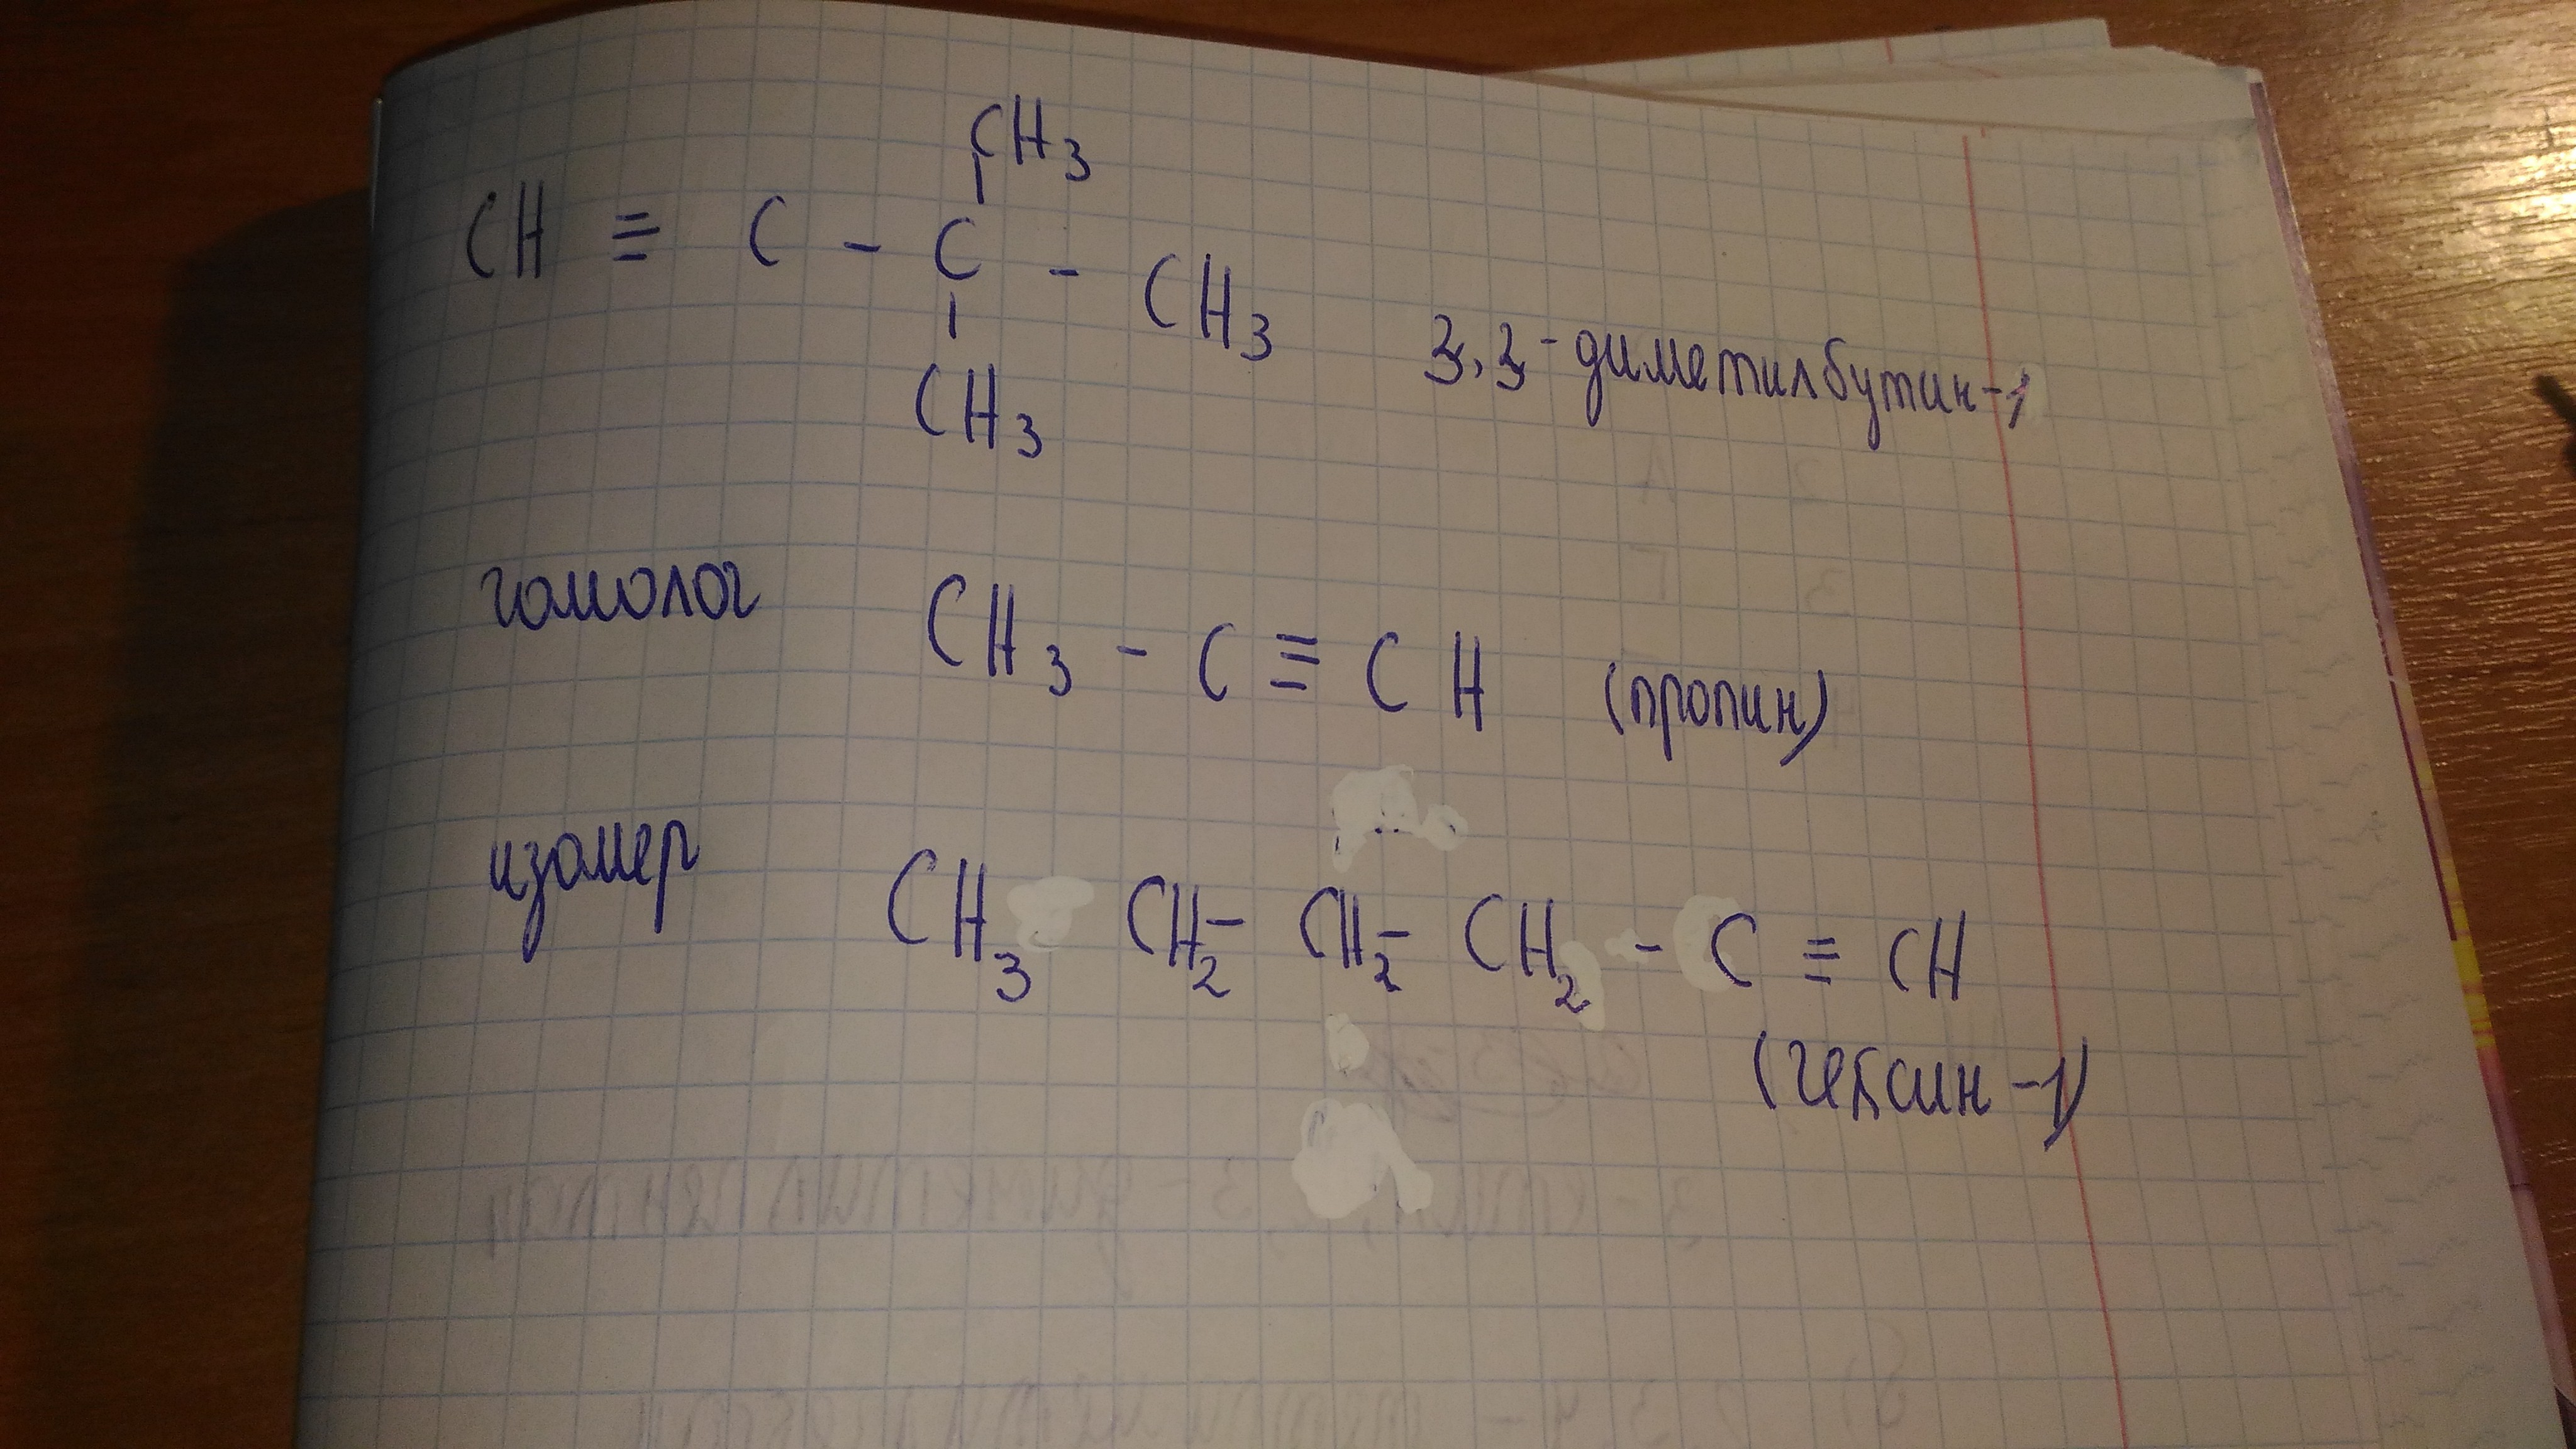 CH3
CH ≡ C - C - CH3 3,3-диметилбутин-1
CH3
гомолог CH3 - C ≡ CH (пропин)
изомер CH3 CH2- CH2- CH2 - C ≡ CH
(гексин-1)